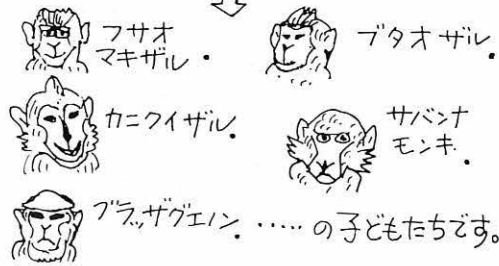 フサオ
マキザル.
ブタオザル.
カニクイザル.
サバンナ
モンキ.
ブラッザグエノン. ‥‥‥の子どもたちです。